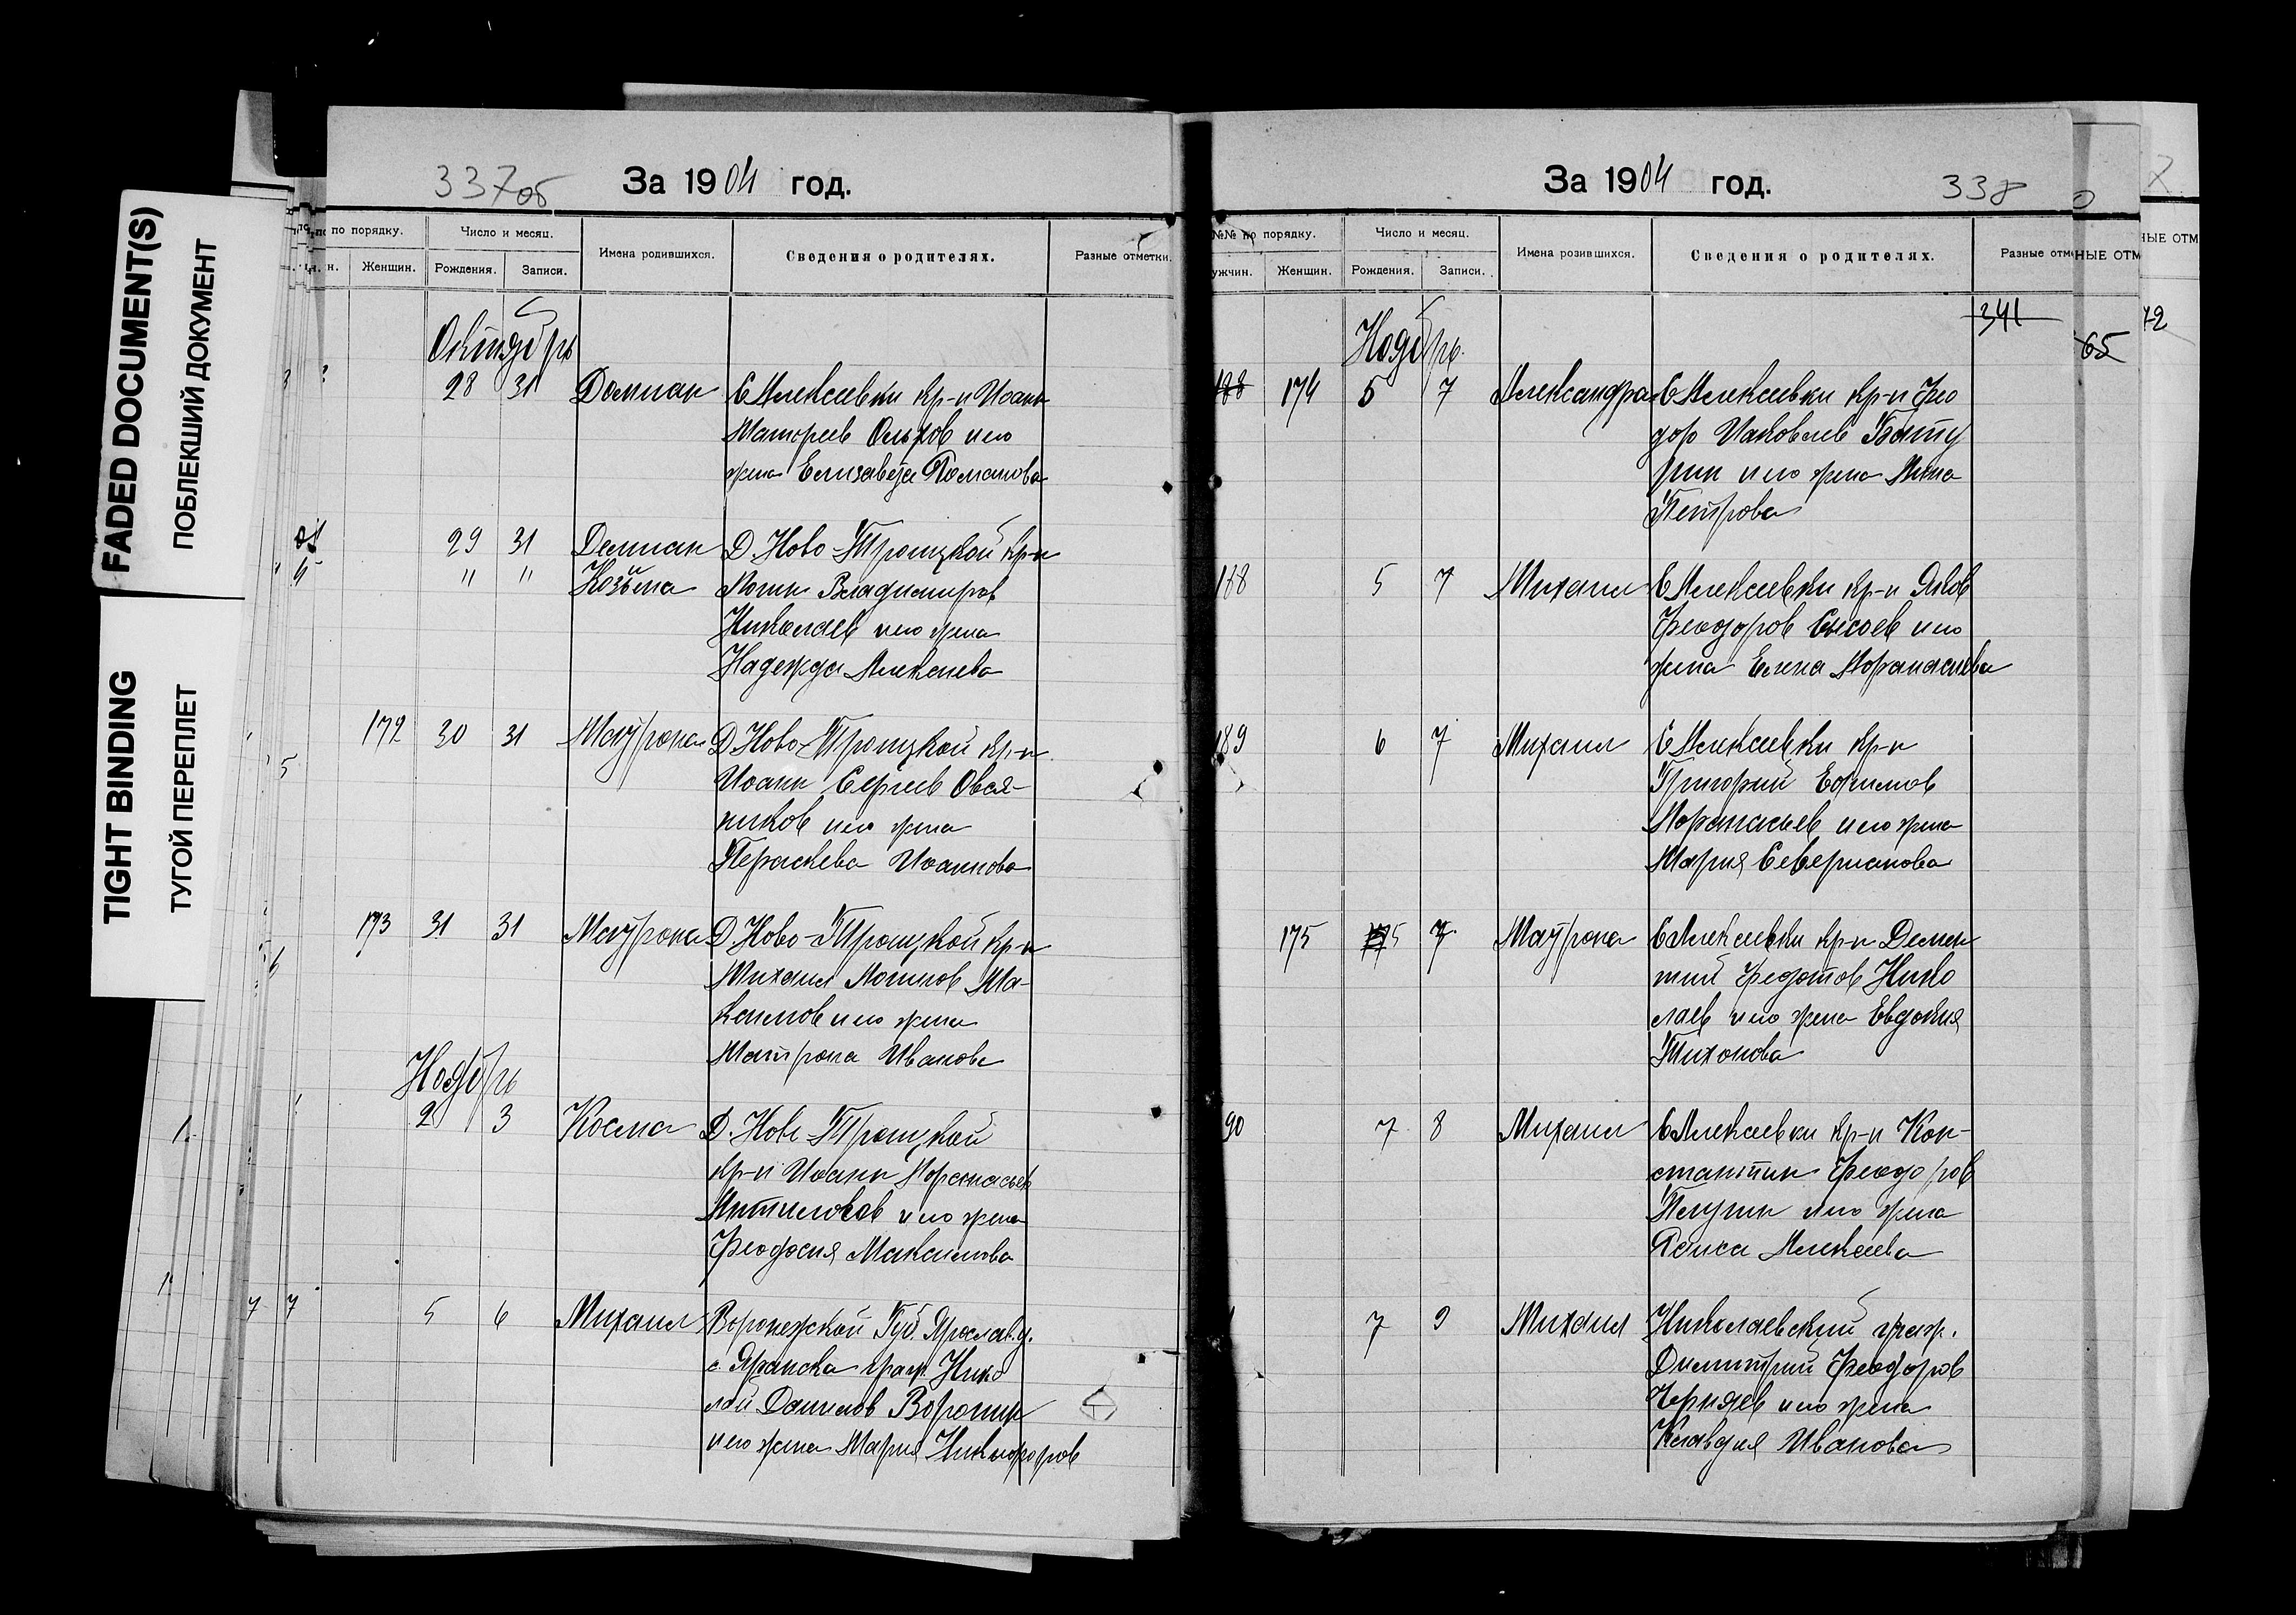 FADED DOCUMENT(S)
ПОБЛЕКШИЙ ДОКУМЕНТ
TIGHT BINDING
ТУГОЙ ПЕРЕПЛЕТ
337об
За 1904 год.
по порядку.
Число и месяц.
Имена родившихся.
Сведения о родителях.
Разные отметки.
Женщин.
Рождения.
Записи.
Октябрь
28 31 Домиан С Алексеевки кр-н Иоанн
Матфеев Ольхов и его
жена Елизавета Романова
29 31 Демиан Д. Ново-Троицкой кр-н
" " Козьма Логин Владимиров
Николаев и его жена
Надежда Алексеева
172 30 31 Матрона Д. Ново-Троицкой кр-н
Иоанн Сергеев Овсян-
ников и его жена
Параскева Иоаннова
173 31 31 Матрона Д. Ново-Троицкой кр-н
Михаил Логинов Ма-
ксимов и его жена
Матрона Иванова
Ноябрь
2 3 Косма Д. Ново-Троицкой
кр-н Иоанн Афанасьев
и его жена
Феодосия Максимова
5 6 Михаил Воронежской Губ.
граж. Нико
лай Данилов Воронин
и его жена Мария Никифоров
За 1904 год.
338
№№ по порядку.
Число и месяц.
Имена розившихся.
Сведения о родителях.
Разные отм
НЫЕ ОТМ
НЫЕ ОТМ
ужчин.
Женщин.
Рождения.
Записи.
341
65
72
Ноябрь.
188 174 5 7 Александра С Алексеевки кр-н Фео
дор Иаковлев Бату
рин и его жена Анна
Петрова
188 5 7 Михаил С Алексеевки кр-н Яков
Феодоров Сысоев и его
жена Елена Афанасиева
189 6 7 Михаил С Алексеевки кр-н
Григорий Ефимов
Афанасьев и его жена
Мария Севериянова
175 5 7 Матрона С Алексеевки кр-н Демен
тий Федотов Нико
лаев и его жена Евдокия
Тихонова
90 7 8 Михаил С Алексеевки кр-н Кон-
стантин Феодоров
и его жена
Раиса Алексеева
7 9 Михаил Николаевский граж.
Димитрий Феодоров
Черняев и его жена
Клавдия Иванова